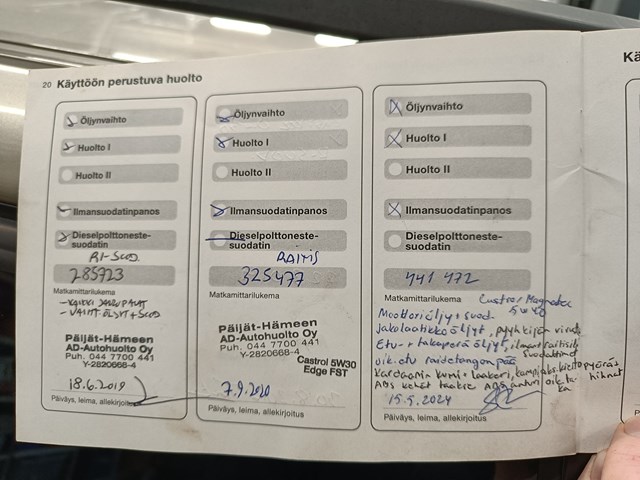 20 Käyttöön perustuva huolto
Öljynvaihto
Huolto I
Huolto II
Ilmansuodatinpanos
Dieselpolttoneste-
suodatin
RI-SUOD
285723
Matkamittarilukema
Päijät-Hämeen
AD-Autohuolto Oy
Puh. 044 7700 441
Y-2820668-4
18.6.2019
Päiväys, leima, allekirjoitus
Öljynvaihto
Huolto I
Huolto II
Ilmansuodatinpanos
Dieselpolttoneste-
suodatin
RAITIS
325477
Matkamittarilukema
Päijät-Hämeen
AD-Autohuolto Oy
Puh. 044 7700 441
Y-2820668-4
Castrol 5W30
Edge FST
7.9.2020
Päiväys, leima, allekirjoitus
Öljynvaihto
Huolto I
Huolto II
Ilmansuodatinpanos
Dieselpolttoneste-
suodatin
441 472
Matkamittarilukema
Castrol Magnatec
5W40
Moottoriöljy + suod.
jakolaatikko öljyt, pyyhkijän
Etu- + takaperä öljyt, ilman
suodattimet
oik. etu raidetangonpää
Kardaanin kumi + laakeri,
ABS kehät taakse ABS anturi oik. ta-
ka
15.5.2024
Päiväys, leima, allekirjoitus
Kä